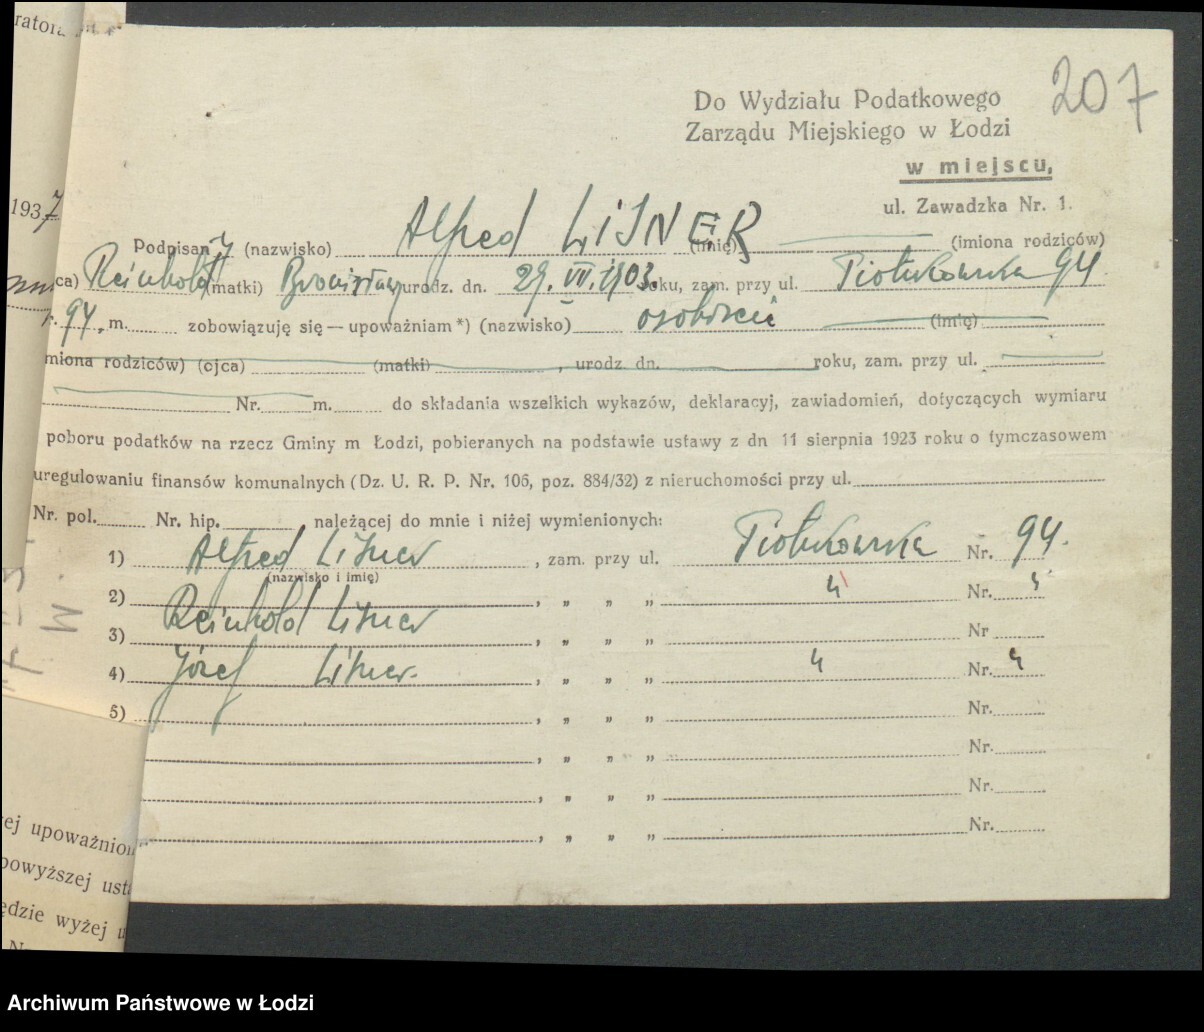 207
Do Wydziału Podatkowego
Zarządu Miejskiego w Łodzi
w miejscu,
ul. Zawadzka Nr. 1.
1937
Podpisany (nazwisko) Alfred LISNER (imię) (imiona rodziców)
ca) Reinhold (matki) Bronisławy urodz. dn. 29. VII. 1903. roku, zam. przy ul. Piotrkowska 94
r. 94, m. zobowiązuję się — upoważniam *) (nazwisko) osobiście (imię)
miona rodziców) (ojca) (matki) , urodz. dn. roku, zam. przy ul.
Nr. m. do składania wszelkich wykazów, deklaracyj, zawiadomień, dotyczących wymiaru
poboru podatków na rzecz Gminy m Łodzi, pobieranych na podstawie ustawy z dn 11 sierpnia 1923 roku o tymczasowem
uregulowaniu finansów komunalnych (Dz. U. R. P. Nr. 106, poz. 884/32) z nieruchomości przy ul.
Nr. pol. Nr. hip. , należącej do mnie i niżej wymienionych:
1) Alfred Lisner , zam. przy ul. Piotrkowska Nr. 94.
(nazwisko i imię)
2) Reinhold Lisner , „ „ „ " Nr. "
3) , „ „ „ Nr
4) Józef Lisner. , „ „ „ " Nr. "
5) , „ „ „ Nr.
, „ „ „ Nr.
, „ „ „ Nr.
, „ „ „ Nr.
ej upoważnion
powyższej usta
ędzie wyżej u
Archiwum Państwowe w Łodzi